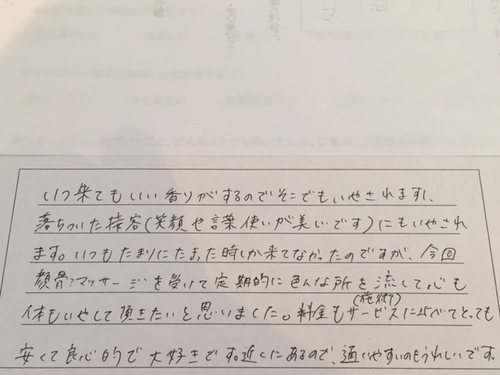 いつ来てもいい香りがするのでそこでもいやされますし、
落ちついた接客(笑顔や言葉使いが美しいです)にもいやされ
ます。いつもたまりにたまった時しか来てなかったのですが、今回
顔骨マッサージを受けて定期的に色んな所を流して心も
体もいやして頂きたいと思いました。料金もサービス(施術)に比べてとっても
安くて良心的で大好きです。近くにあるので、通いやすいのもうれしいです。